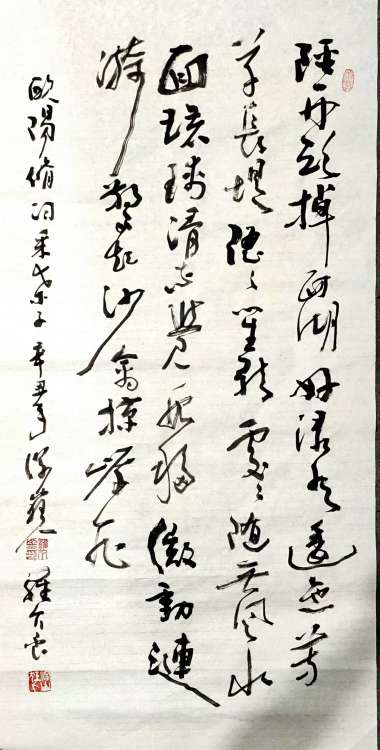 輕舟短棹西湖好绿水逶迤芳
草長堤隱々笙歌處々随无风水
面琉璃滑不覺船移微動漣
漪驚起沙禽掠岸飛
歐陽脩词采桑子辛丑